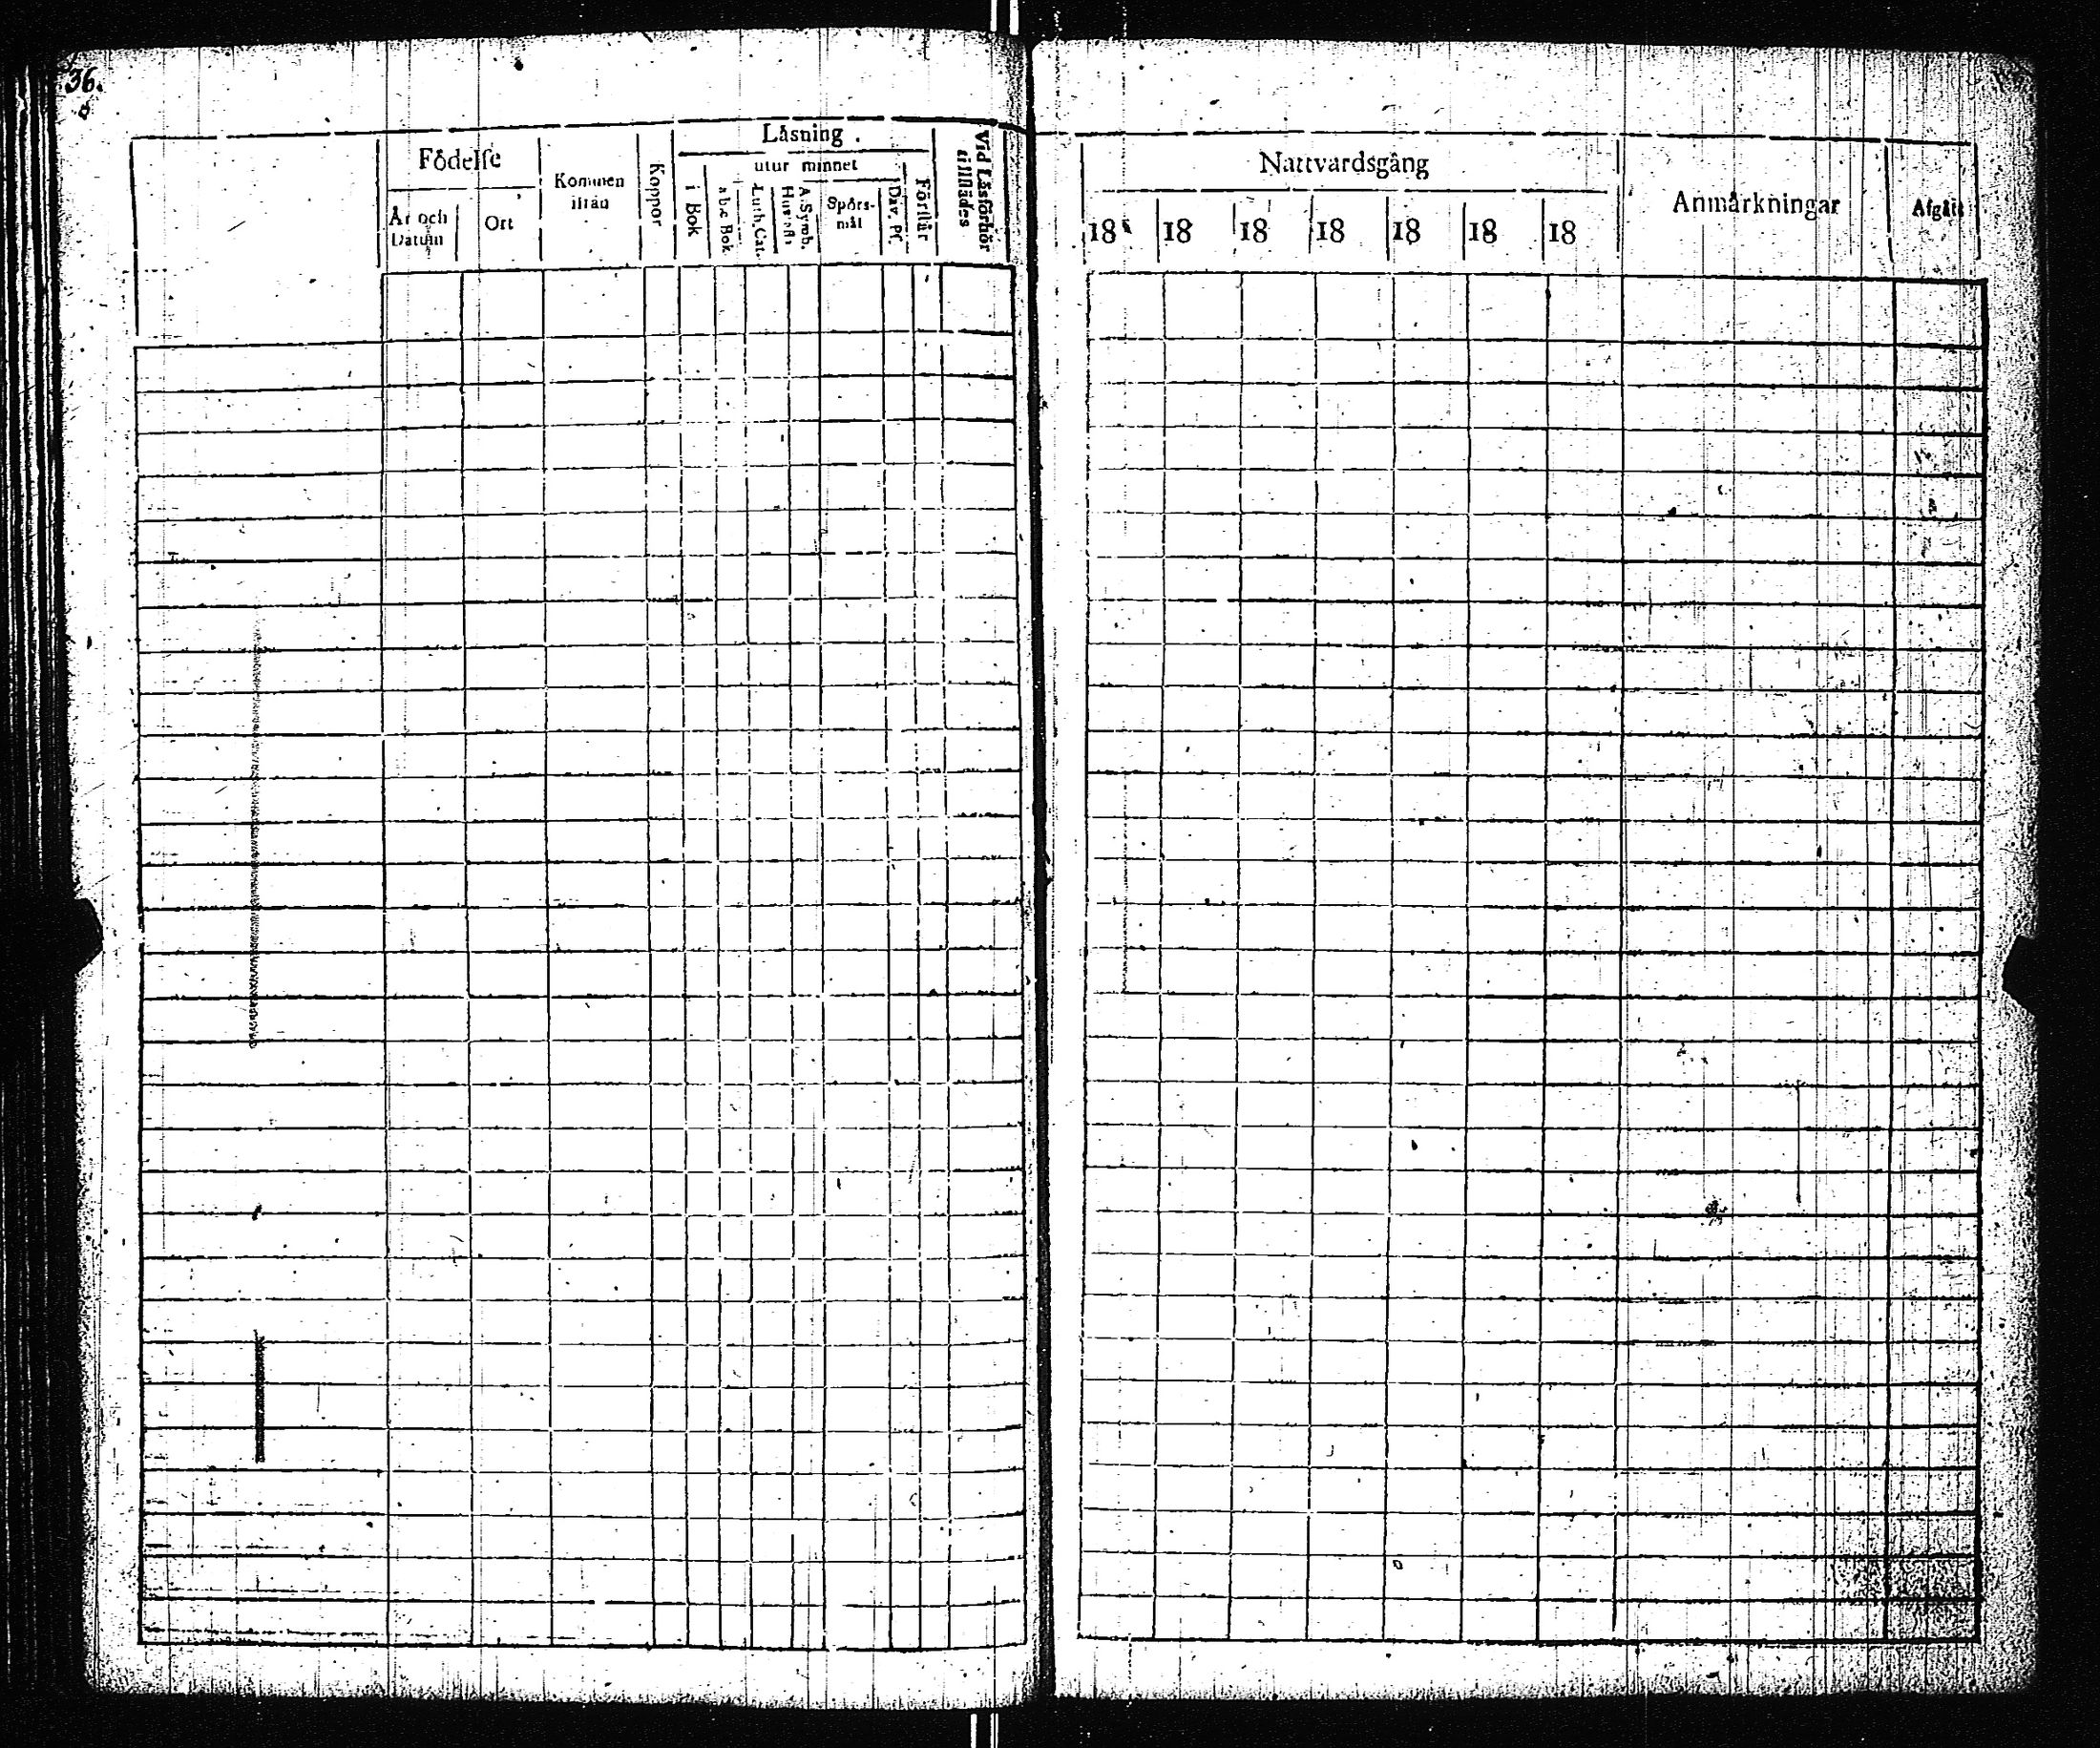 36.
Födelse
År och Datum
Ort
Kommen ifrån
Koppor
Läsning.
utur minnet
i Bok
abc Bok
Luth. Cat.
A. Symb.
Spörs-
mål
Dav. Ps.
Förstår
Vid Läsförhör
tillstädes
Nattvardsgång
18 18 18 18 18 18 18
Anmärkningar
Afgått